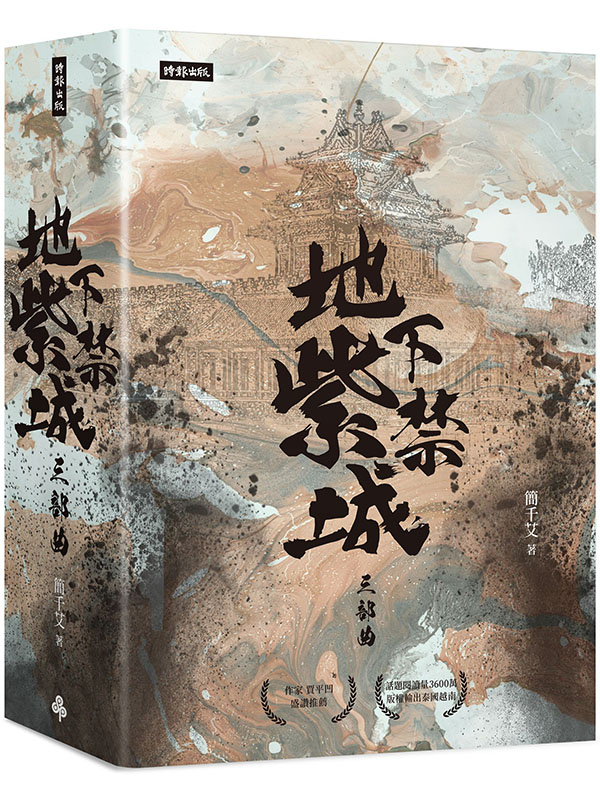 時報出版
地下紫禁城
三部曲
簡千艾 著
時報出版
地下紫禁城
三部曲
簡千艾 著
作家 賈平凹
盛讚推薦
話題閱讀量3600萬
版權輸出泰國越南